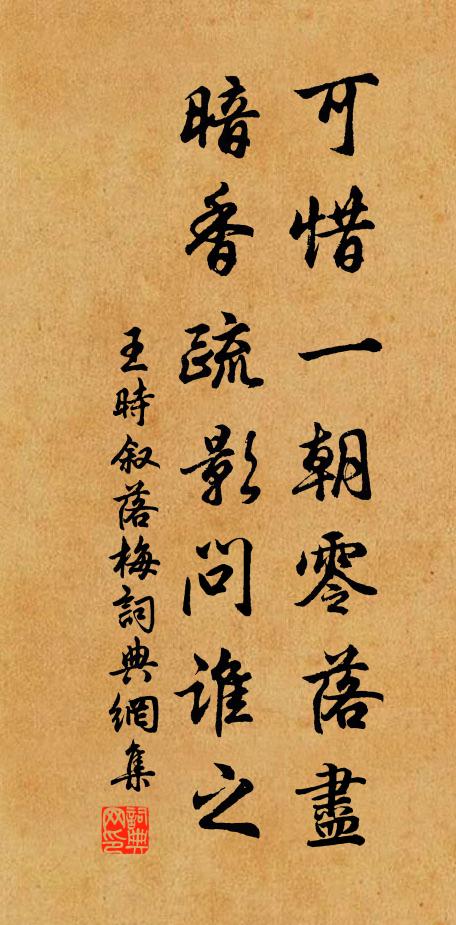 可惜一朝零落盡
暗香疏影問誰之
王時叙落梅詞典網集
詞典网印